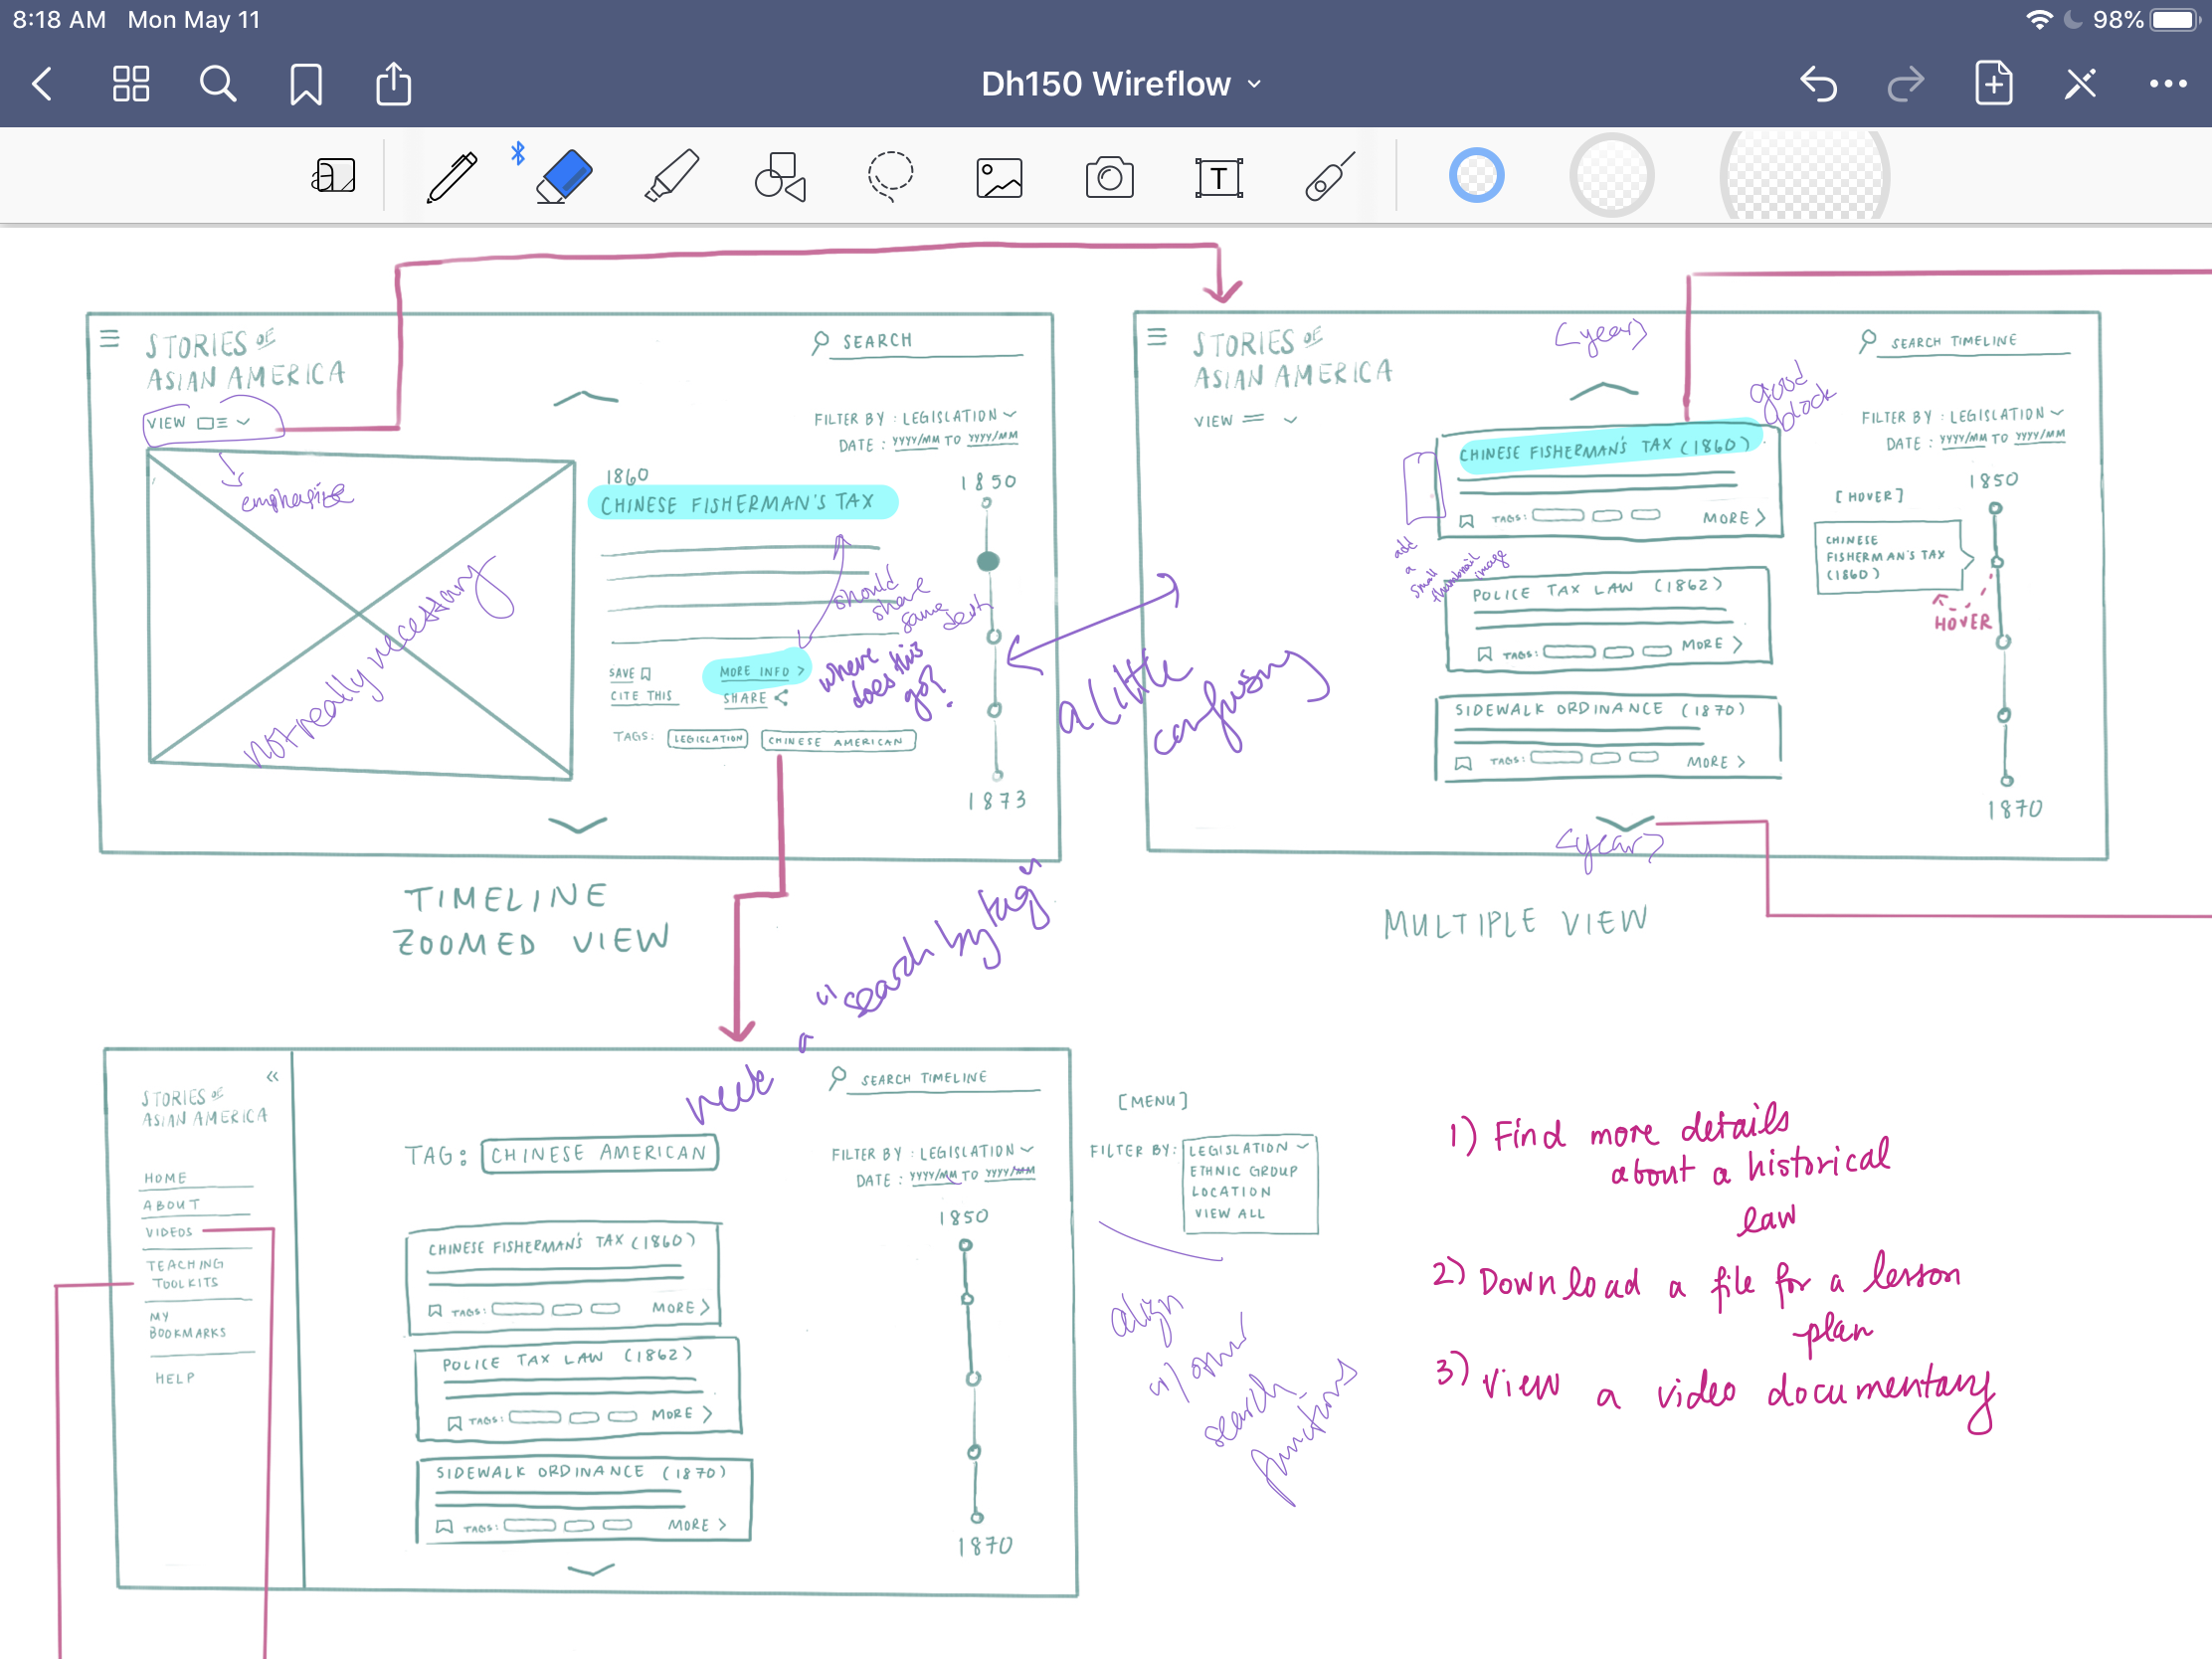 8:18 AM Mon May 11
98%
Dh150 Wireflow
a
T
STORIES OF
ASIAN AMERICA
SEARCH
VIEW
emphasize
FILTER BY : LEGISLATION
DATE : YYYY/MM TO YYYY/MM
not really necessary
1860
CHINESE FISHERMAN'S TAX
should
share
same
where
does this
go?
SAVE
MORE INFO >
CITE THIS
SHARE
TAGS: LEGISLATION CHINESE AMERICAN
1850
1873
TIMELINE
ZOOMED VIEW
a little
confusing
STORIES OF
ASIAN AMERICA
<year>
SEARCH TIMELINE
VIEW
good
block
FILTER BY : LEGISLATION
DATE : YYYY/MM TO YYYY/MM
CHINESE FISHERMAN'S TAX (1860)
TAGS: MORE >
add
a
small
thumbnail
image
POLICE TAX LAW (1862)
TAGS: MORE >
SIDEWALK ORDINANCE (1870)
TAGS: MORE >
<year>
[HOVER]
CHINESE
FISHERMAN'S TAX
(1860)
HOVER
1850
1870
MULTIPLE VIEW
need a "search by tag"
STORIES OF
ASIAN AMERICA
«
HOME
ABOUT
VIDEOS
TEACHING
TOOLKITS
MY
BOOKMARKS
HELP
SEARCH TIMELINE
TAG: CHINESE AMERICAN
FILTER BY : LEGISLATION
DATE : YYYY/MM TO YYYY/MM
CHINESE FISHERMAN'S TAX (1860)
TAGS: MORE >
POLICE TAX LAW (1862)
TAGS: MORE >
SIDEWALK ORDINANCE (1870)
TAGS: MORE >
1850
1870
[MENU]
FILTER BY: LEGISLATION
ETHNIC GROUP
LOCATION
VIEW ALL
align
w/ other
search
functions
1) Find more details
about a historical
law
2) Download a file for a lesson
plan
3) View a video documentary